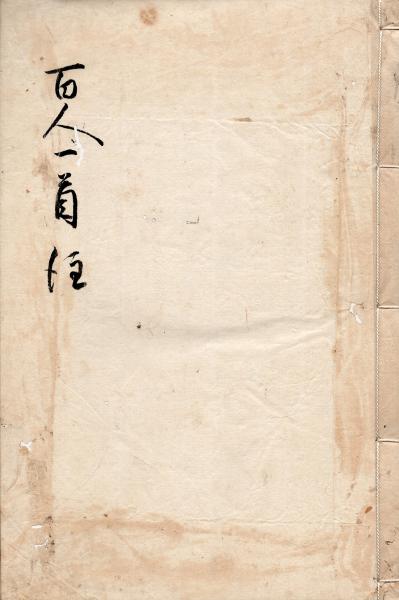 百人一首注